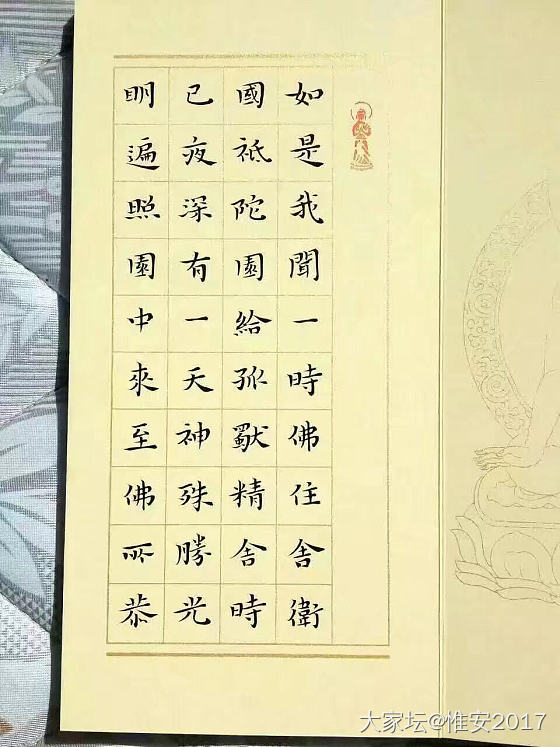 如是我聞一時佛住舍衛
國祇陀園給孤獸精舍時
已夜深有一天神殊勝光
明遍照園中來至佛所恭
大家坛@惟安2017